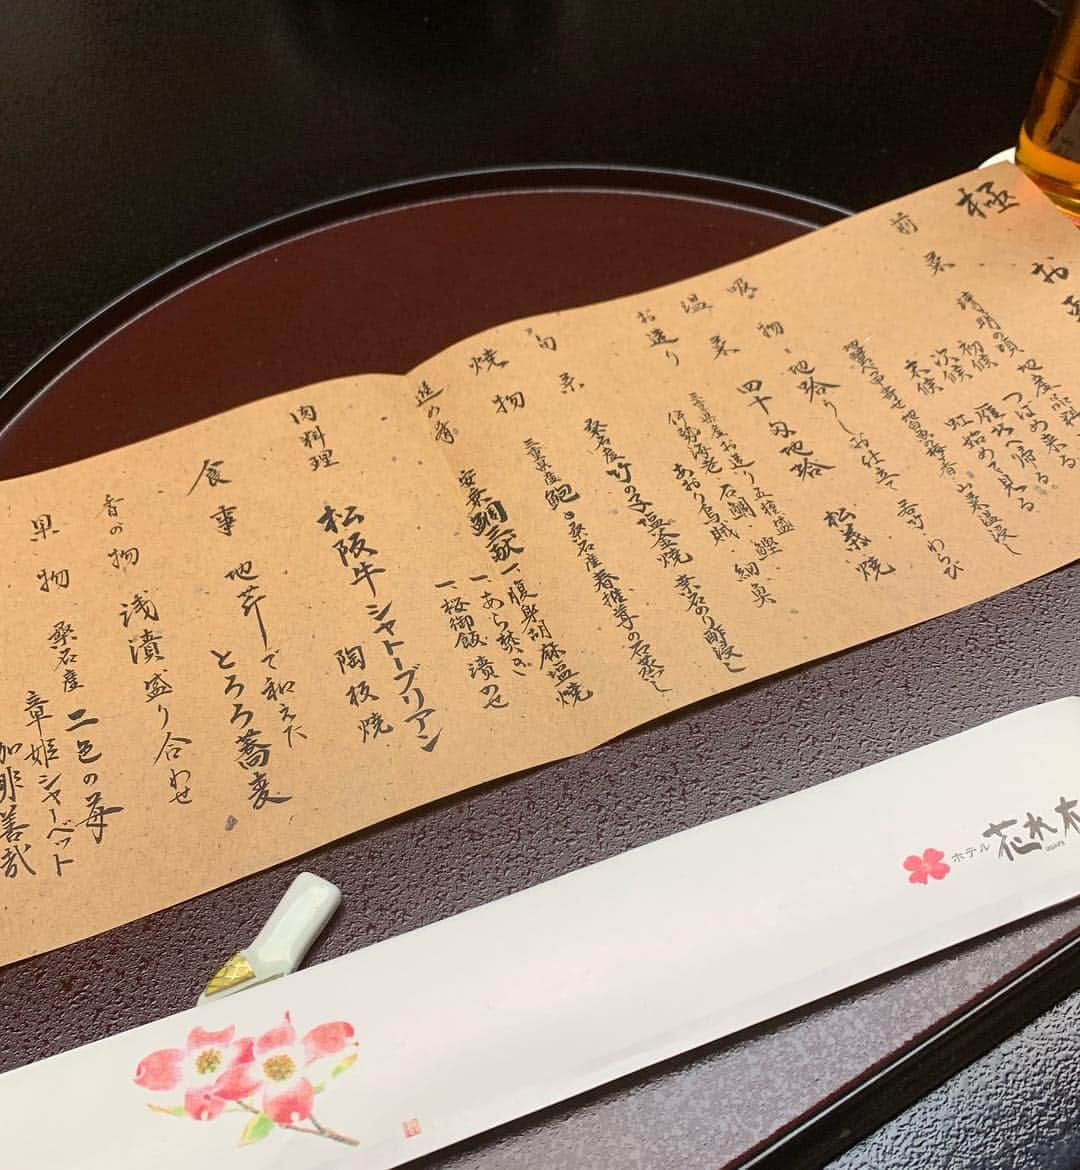 極
前菜
晴明の頃
初候 つばめ来る
次候 雁北へ帰る
末候 虹始めて見る
山菜温浸し
吸物 地蛤うしお仕立て わらび
温菜 四十匁地蛤 松葉焼
お造り 三重県産お造り五種盛
伊勢海老 石鯛 鰹 細魚
あおり烏賊
旬菜 桑名産竹の子塩釜焼 桑名のり酢浸し
焼物 三重県産鮑と桑名産春椎茸の石蒸し
進め肴 安乗鯛三献
一 腹身胡麻塩焼
一 あら焚き
一 桜御飯 漬のせ
肉料理 松阪牛シャトーブリアン
陶板焼
食事 地芹で和えた
とろろ蕎麦
香の物 浅漬盛り合わせ
果物 桑名産二色の苺
章姫シャーベット
加耶善哉
ホテル 花水木